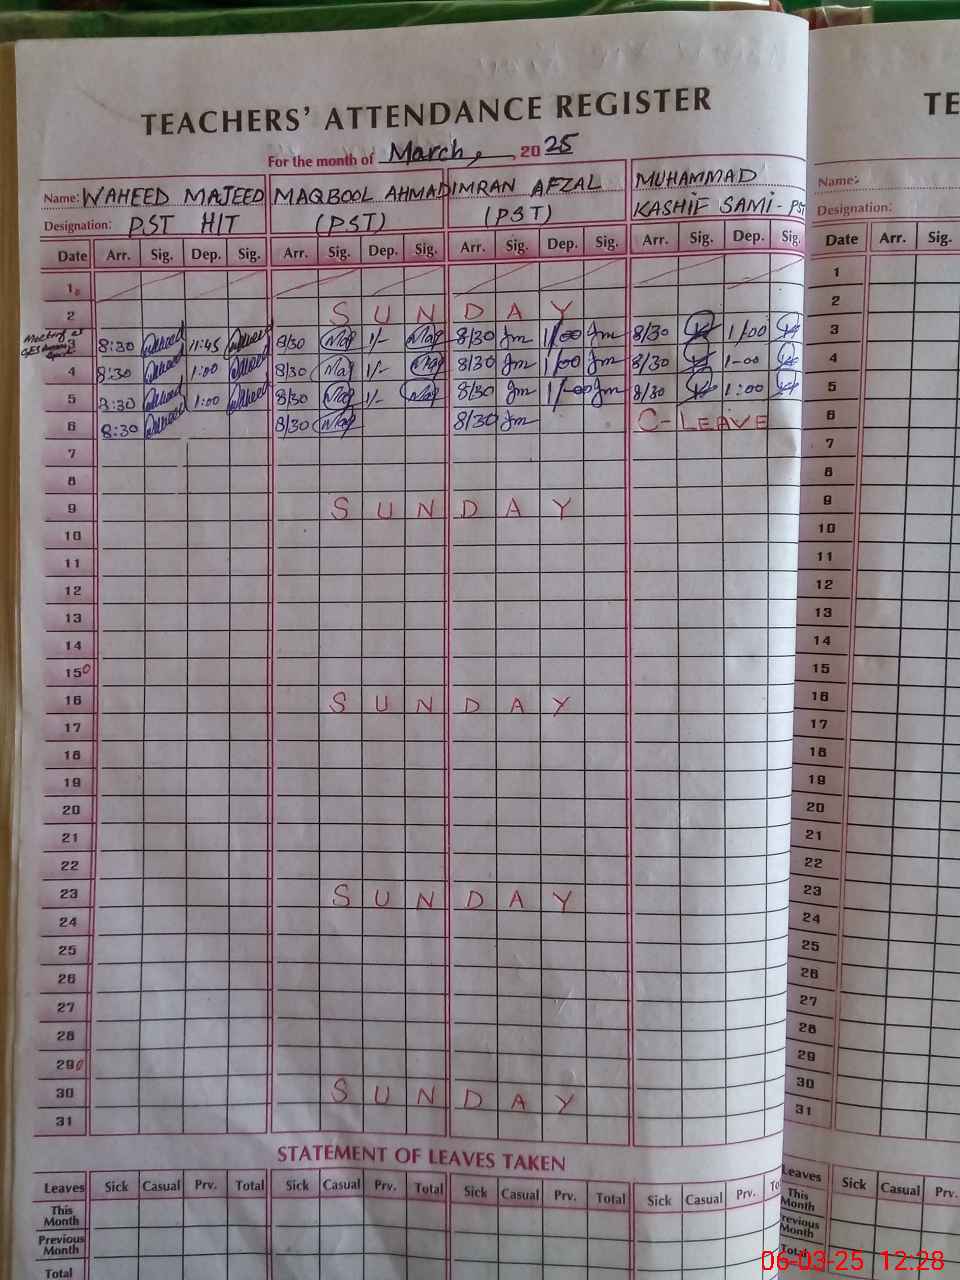 TEACHERS' ATTENDANCE REGISTER
For the month of March, 2025
Name: WAHEED MAJEED MAQBOOL AHMAD IMRAN AFZAL MUHAMMAD
Designation: PST H/T (PST) (PST) KASHIF SAMI - PST
Date Arr. Sig. Dep. Sig. Arr. Sig. Dep. Sig. Arr. Sig. Dep. Sig. Arr. Sig. Dep. Sig.
1
2 S U N D A Y
Meeting at
3 8:30 Waheed 11:45 Waheed 8/30 Maq 1/- Maq 8/30 Im 1/00 Im 8/30 1/00
4 8:30 Waheed 1:00 Waheed 8/30 Maq 1/- Maq 8/30 Im 1/00 Im 8/30 1-00
5 8:30 Waheed 1:00 Waheed 8/30 Maq 1/- Maq 8/30 Im 1/00 Im 8/30 1:00
6 8:30 Waheed 8/30 Maq 8/30 Im C-LEAVE
7
8
9 S U N D A Y
10
11
12
13
14
15
16 S U N D A Y
17
18
19
20
21
22
23 S U N D A Y
24
25
26
27
28
29
30 S U N D A Y
31
STATEMENT OF LEAVES TAKEN
Leaves Sick Casual Prv. Total Sick Casual Prv. Total Sick Casual Prv. Total Sick Casual Prv.
This
Month
Previous
Month
Total
TE
Name:
Designation:
Date Arr. Sig.
1
2
3
4
5
6
7
8
9
10
11
12
13
14
15
16
17
18
19
20
21
22
23
24
25
26
27
28
29
30
31
Leaves Sick Casual Prv.
This
Month
Previous
Month
Total
06-03-25 12:28